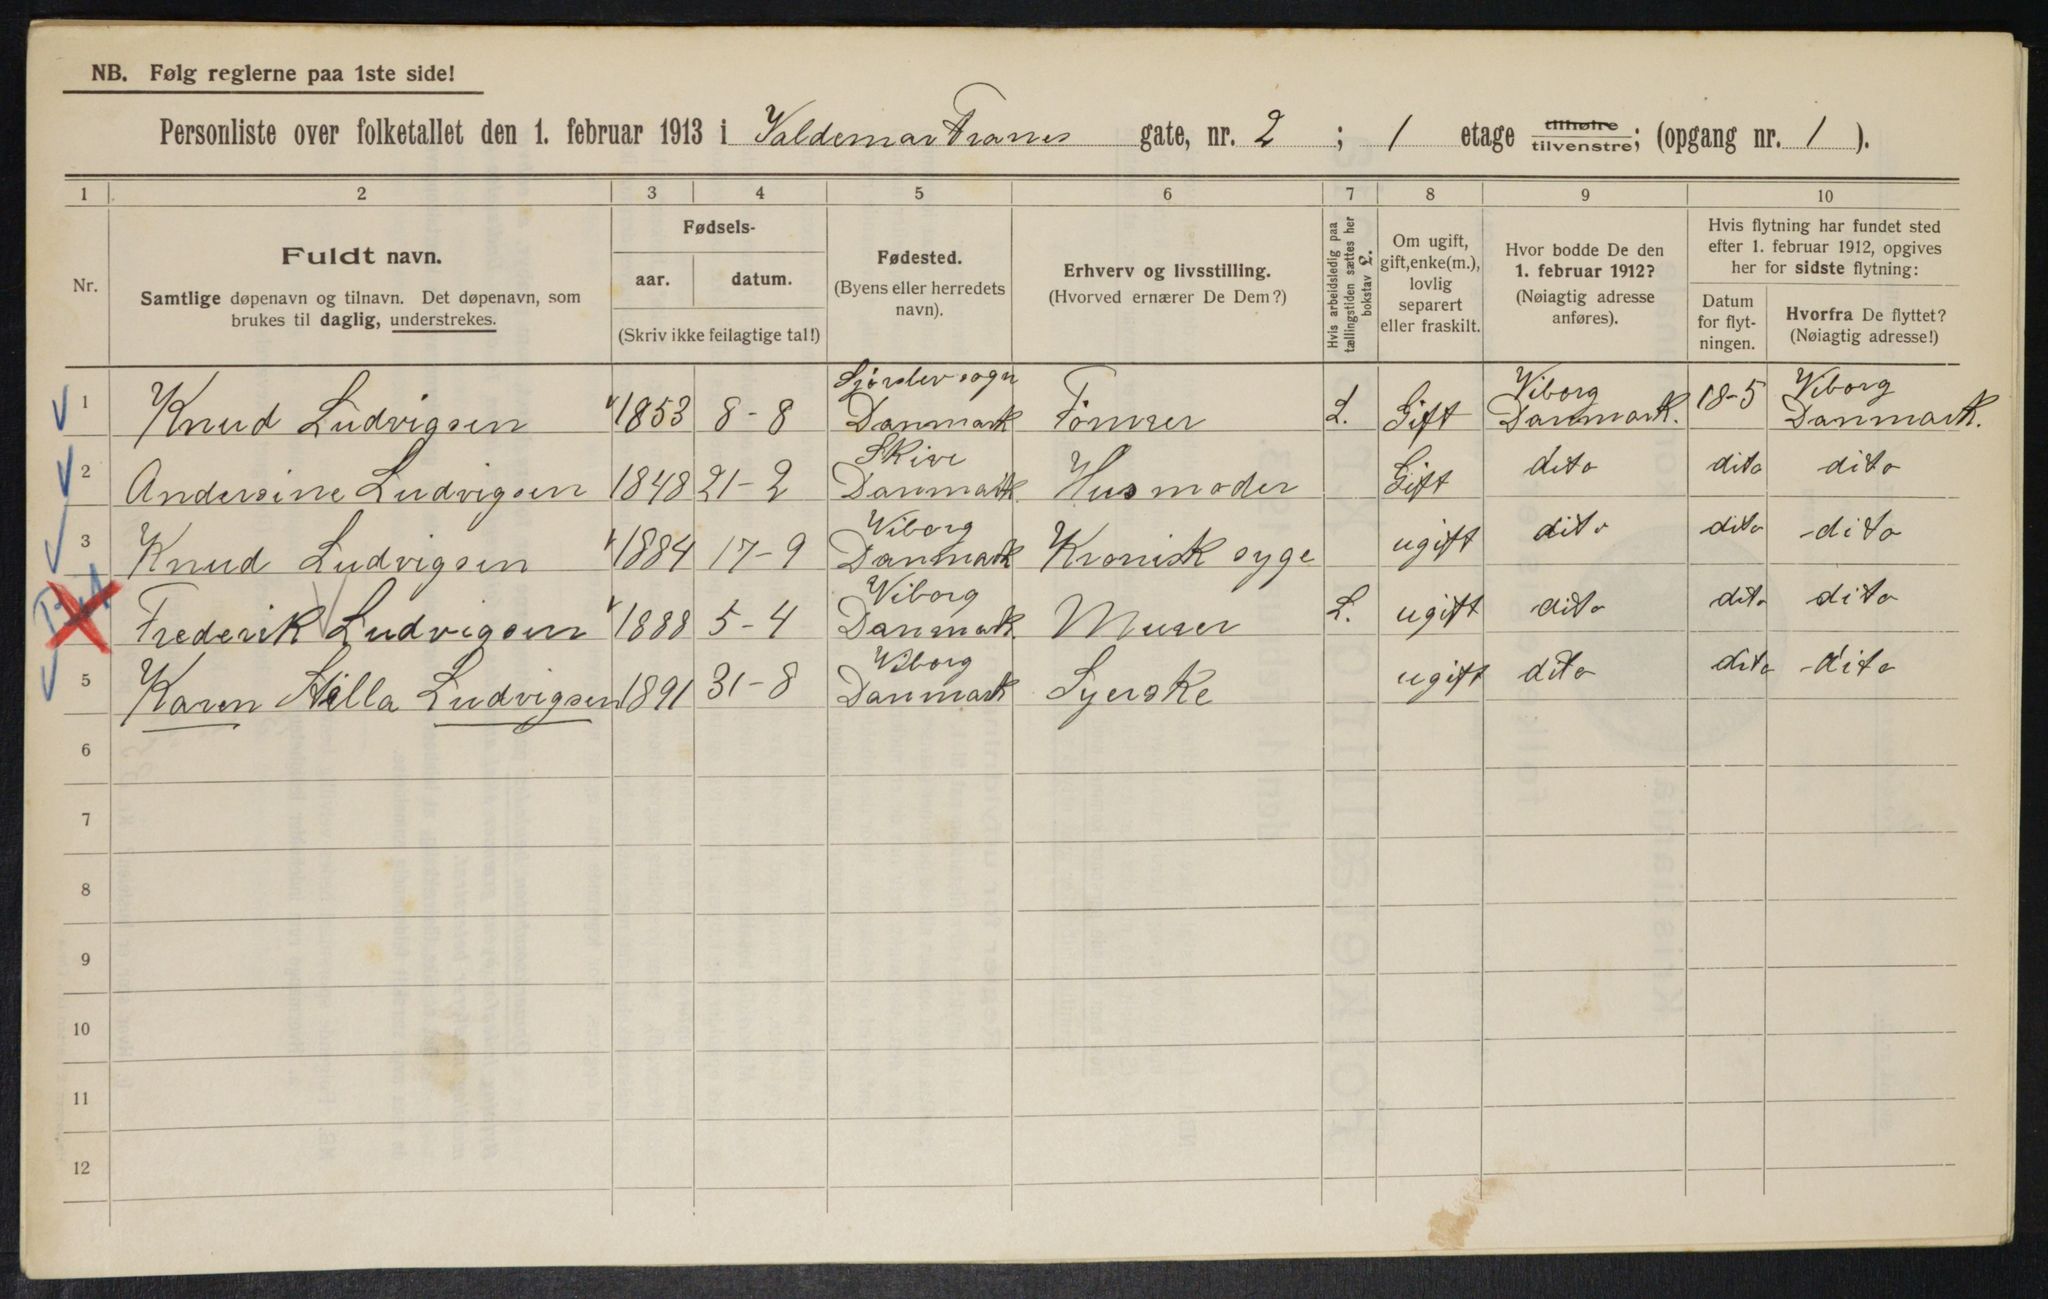 NB. Følg reglerne paa 1ste side!
Personliste over folketallet den 1. februar 1913 i Valdemar Tranes gate, nr. 2 ; 1 etage tilhøire tilvenstre; (opgang nr. 1 ).
1 2 3 4 5 6 7 8 9 10
Nr.
Fuldt navn.
Samtlige døpenavn og tilnavn. Det døpenavn, som
brukes til daglig, understrekes.
Fødsels-
aar. datum.
(Skriv ikke feilagtige tal!)
Fødested.
(Byens eller herredets
navn).
Erhverv og livsstilling.
(Hvorved ernærer De Dem?)
Hvis arbeidsledig paa
tællingstiden sættes her
bokstav L.
Om ugift,
gift, enke(m.),
lovlig
separert
eller fraskilt.
Hvor bodde De den
1. februar 1912?
(Nøiagtig adresse
anføres).
Hvis flytning har fundet sted
efter 1. februar 1912, opgives
her for sidste flytning:
Datum
for flyt-
ningen.
Hvorfra De flyttet?
(Nøiagtig adresse!)
1 Knud Ludvigsen 1853 8-8 Sjørslev sogn Danmark Tömrer L. Gift Viborg Danmark. 18-5 Viborg Danmark.
2 Andersine Ludvigsen 1848 21-2 Skive Danmark Husmoder Gift dito dito dito
3 Knud Ludvigsen 1884 17-9 Viborg Danmark Kronisk syge ugift dito dito -dito
Frederik Ludvigsen 1888 5-4 Viborg Danmark Murer L. ugift dito dito dito
5 Karen Ludvigsen 1891 31-8 Viborg Danmark Syerske ugift dito dito -dito
6
7
8
9
10
11
12